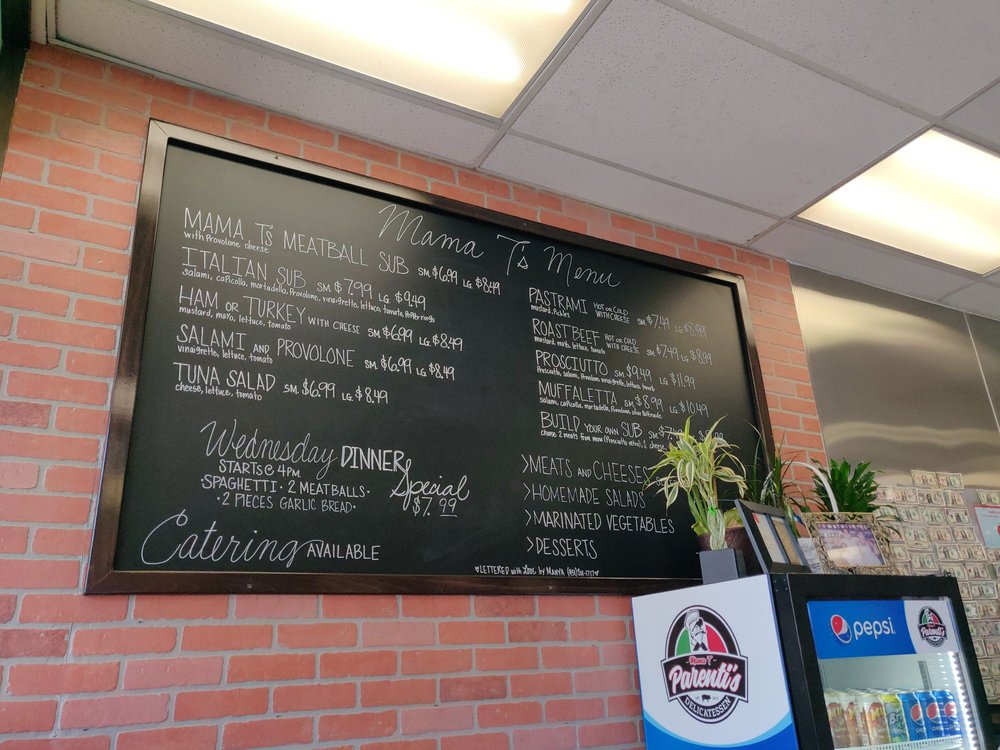 Mama T's Menu
MAMA T'S MEATBALL SUB SM $6.99 LG $8.49
with Provolone cheese
ITALIAN SUB SM $7.99 LG $9.49
salami, capicolla, mortadella, Provolone, vinaigrette, lettuce, tomato,
HAM OR TURKEY WITH CHEESE SM $6.99 LG $8.49
mustard, mayo, lettuce, tomato
SALAMI AND PROVOLONE SM $6.99 LG $8.49
vinaigrette, lettuce, tomato
TUNA SALAD SM $6.99 LG $8.49
cheese, lettuce, tomato
Wednesday DINNER Special
STARTS @ 4PM
SPAGHETTI · 2 MEATBALLS ·
· 2 PIECES GARLIC BREAD ·
$7.99
Catering AVAILABLE
PASTRAMI HOT OR COLD WITH CHEESE SM $7.49 LG $8.99
mustard, Pickles
ROAST BEEF HOT OR COLD WITH CHEESE SM $7.49 LG $8.99
mustard, mayo, lettuce, tomato
PROSCIUTTO SM $9.49 LG $11.99
Prosciutto, salami, Provolone, vinaigrette, lettuce, tomato
MUFFALETTA SM $8.99 LG $10.49
salami, capicolla, mortadella, Provolone, olive
BUILD YOUR OWN SUB SM $7.49
choose 2 meats from menu (Prosciutto extra), 1 cheese
>MEATS AND CHEESES
>HOMEMADE SALADS
>MARINATED VEGETABLES
>DESSERTS
♥LETTERED with LOVE by
Mama T
Parenti's
DELICATESSEN
pepsi
Parenti's